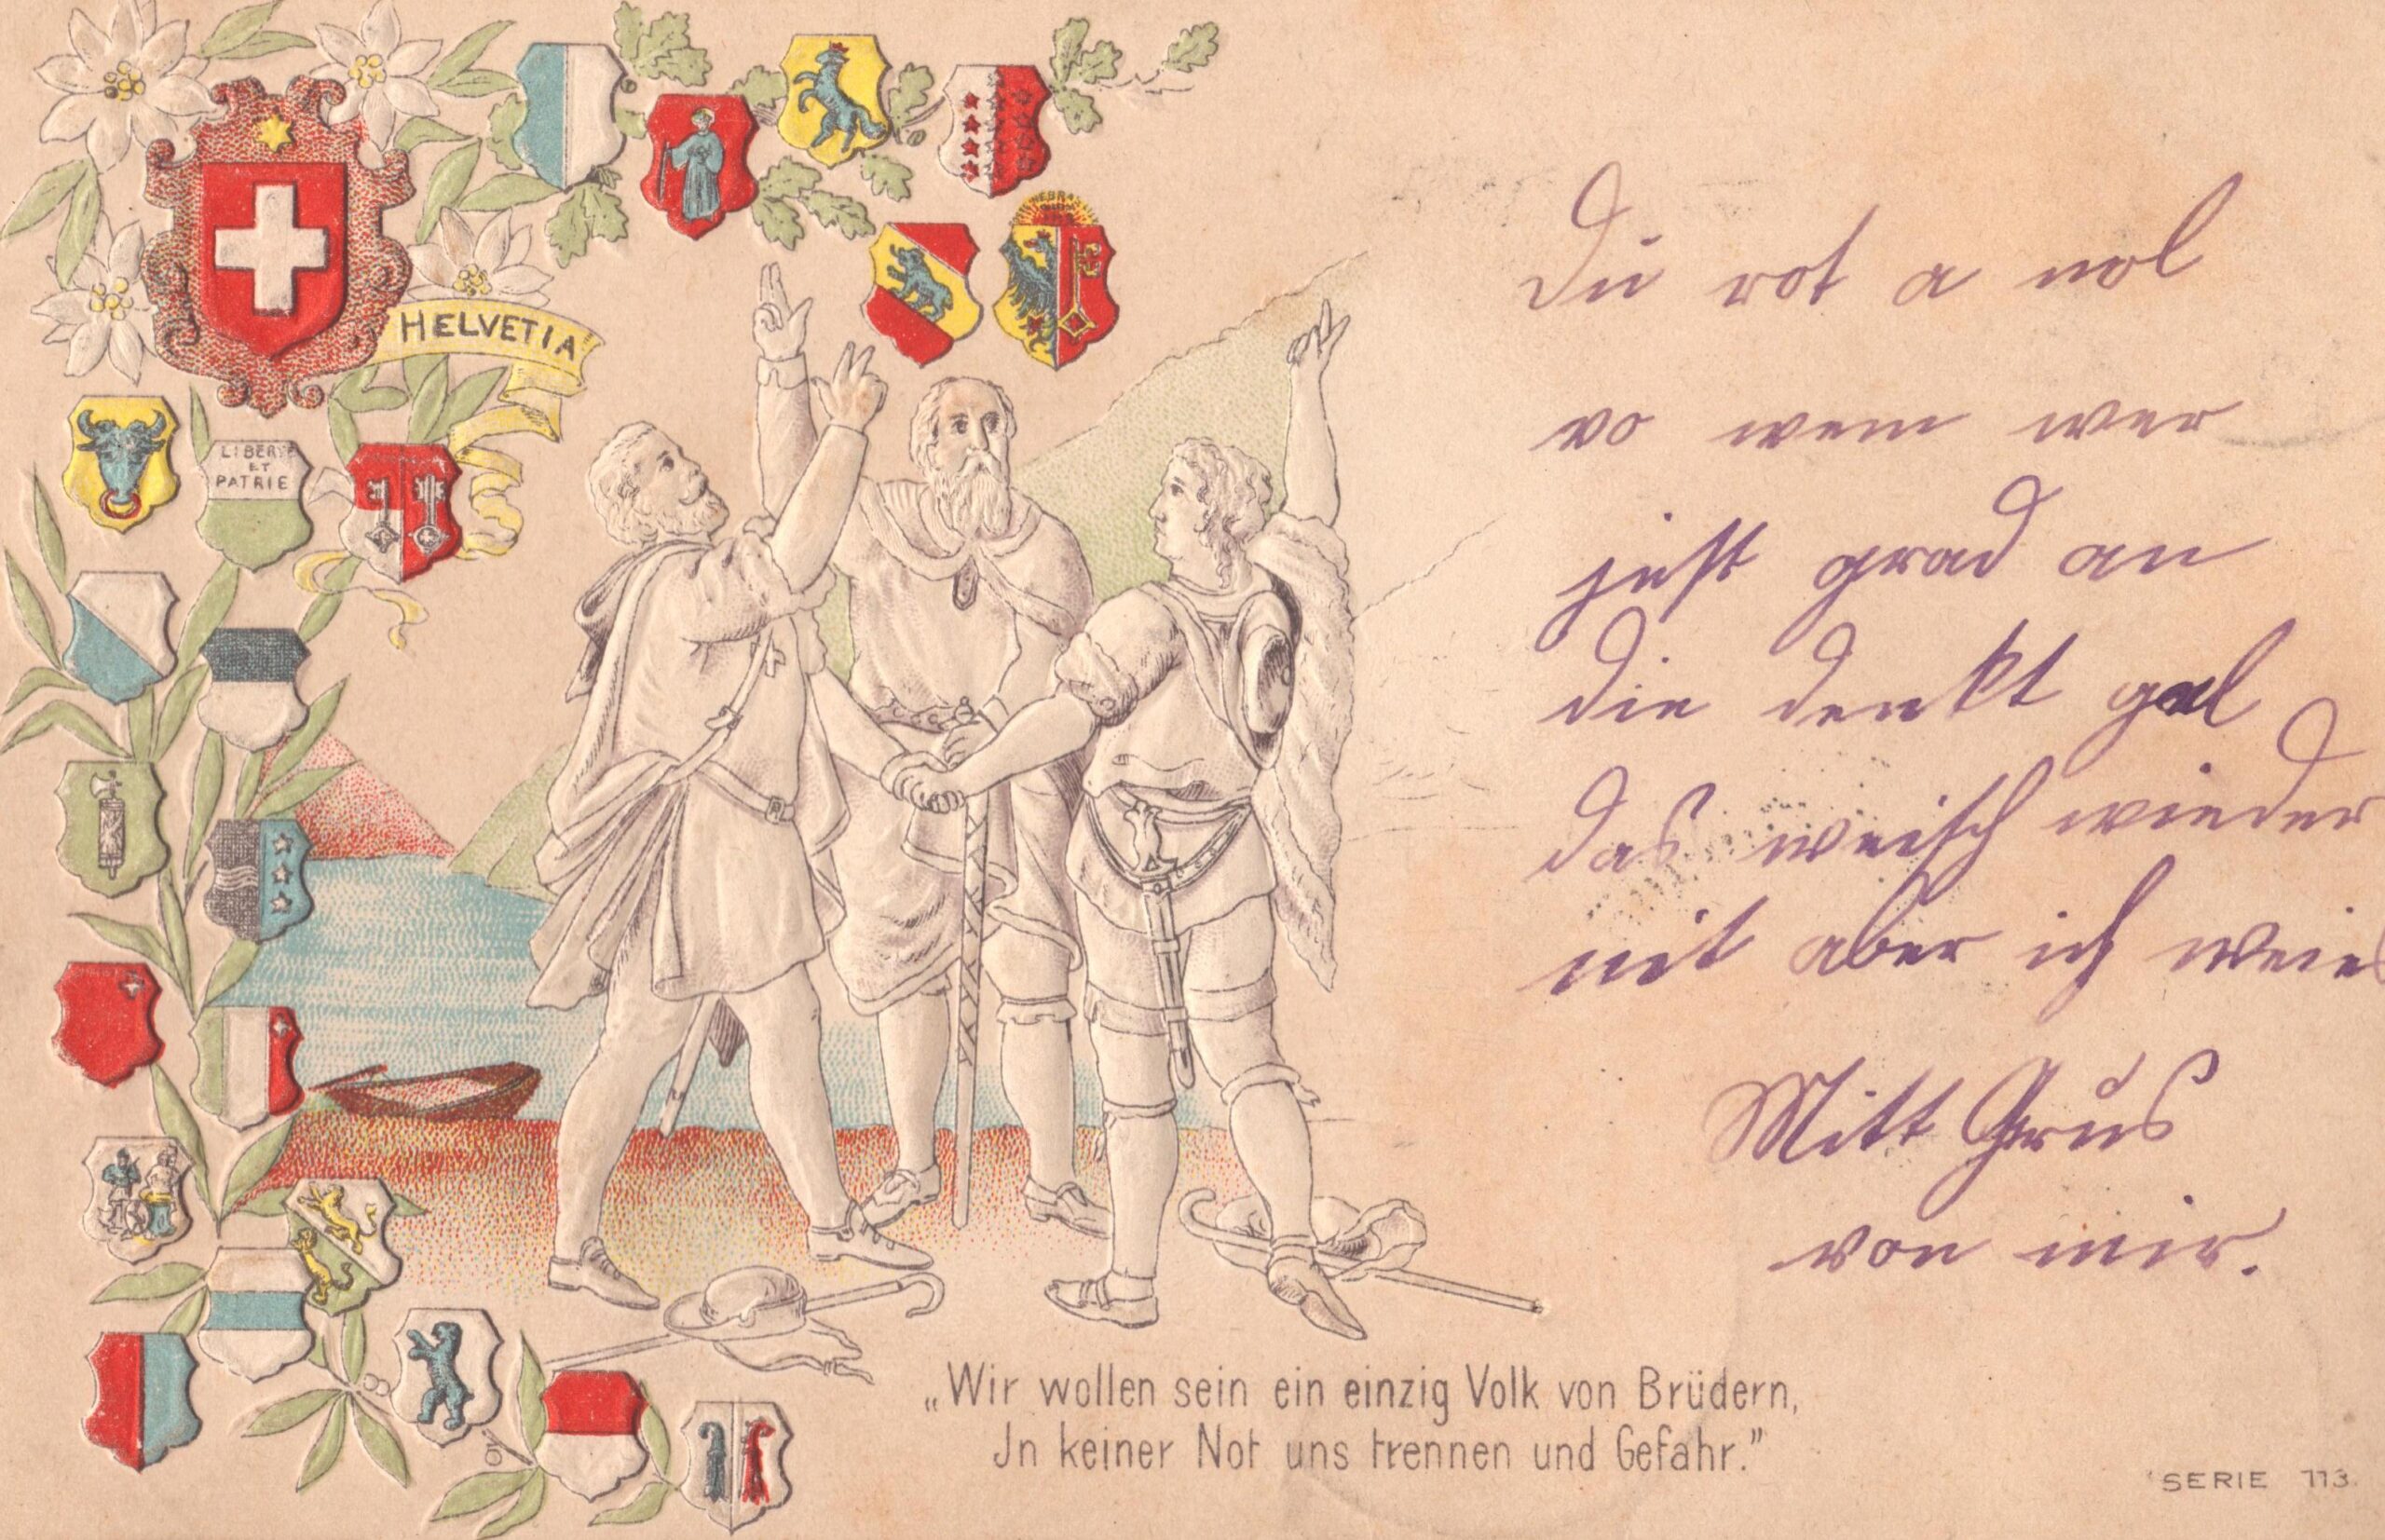 HELVETIA
LIBERTÉ
ET
PATRIE
Du rot a mol
vo wem wer
just grad an
die denkt gal
das weisch wieder
nit aber ich weis
Mitt Grus
von mir.
„Wir wollen sein ein einzig Volk von Brüdern,
Jn keiner Not uns trennen und Gefahr.”
SERIE 113.